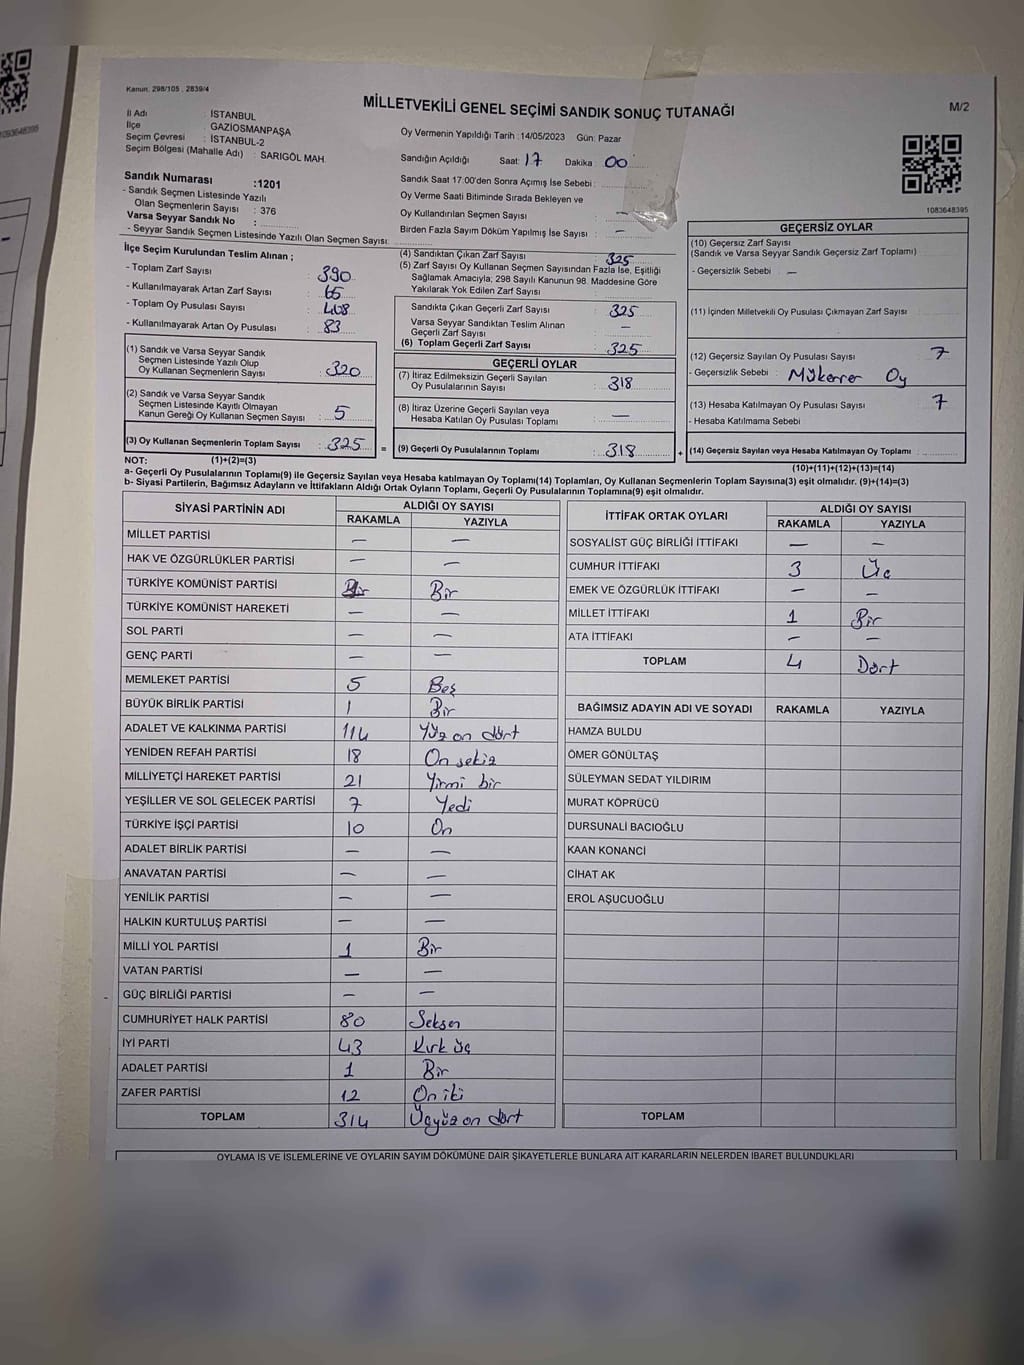 Kanun. 298/105 , 2839/4
MİLLETVEKİLİ GENEL SEÇİMİ SANDIK SONUÇ TUTANAĞI
M/2
İl Adı : İSTANBUL
İlçe : GAZİOSMANPAŞA
Seçim Çevresi : İSTANBUL-2
Seçim Bölgesi (Mahalle Adı) : SARIGÖL MAH.
Oy Vermenin Yapıldığı Tarih :14/05/2023 Gün: Pazar
Sandığın Açıldığı Saat: 17 Dakika : 00
Sandık Saat 17:00'den Sonra Açımış İse Sebebi :
Oy Verme Saati Bitiminde Sırada Bekleyen ve
Oy Kullandırılan Seçmen Sayısı : –
Birden Fazla Sayım Döküm Yapılmış İse Sayısı : –
1083648395
Sandık Numarası :1201
- Sandık Seçmen Listesinde Yazılı
Olan Seçmenlerin Sayısı : 376
Varsa Seyyar Sandık No :
- Seyyar Sandık Seçmen Listesinde Yazılı Olan Seçmen Sayısı:
İlçe Seçim Kurulundan Teslim Alınan ;
- Toplam Zarf Sayısı : 390
- Kullanılmayarak Artan Zarf Sayısı : 65
- Toplam Oy Pusulası Sayısı : 408
- Kullanılmayarak Artan Oy Pusulası : 83
(1) Sandık ve Varsa Seyyar Sandık
Seçmen Listesinde Yazılı Olup
Oy Kullanan Seçmenlerin Sayısı : 320
(2) Sandık ve Varsa Seyyar Sandık
Seçmen Listesinde Kayıtlı Olmayan
Kanun Gereği Oy Kullanan Seçmen Sayısı : 5
(3) Oy Kullanan Seçmenlerin Toplam Sayısı : 325 =
(4) Sandıktan Çıkan Zarf Sayısı : 325
(5) Zarf Sayısı Oy Kullanan Seçmen Sayısından Fazla İse, Eşitliği
Sağlamak Amacıyla; 298 Sayılı Kanunun 98. Maddesine Göre
Yakılarak Yok Edilen Zarf Sayısı :
Sandıkta Çıkan Geçerli Zarf Sayısı : 325
Varsa Seyyar Sandıktan Teslim Alınan
Geçerli Zarf Sayısı : –
(6) Toplam Geçerli Zarf Sayısı : 325
GEÇERLİ OYLAR
(7) İtiraz Edilmeksizin Geçerli Sayılan
Oy Pusulalarının Sayısı : 318
(8) İtiraz Üzerine Geçerli Sayılan veya
Hesaba Katılan Oy Pusulası Toplamı : –
(9) Geçerli Oy Pusulalarının Toplamı : 318 +
GEÇERSİZ OYLAR
(10) Geçersiz Zarf Sayısı
(Sandık ve Varsa Seyyar Sandık Geçersiz Zarf Toplamı) :
- Geçersizlik Sebebi : –
(11) İçinden Milletvekili Oy Pusulası Çıkmayan Zarf Sayısı :
(12) Geçersiz Sayılan Oy Pusulası Sayısı : 7
- Geçersizlik Sebebi : Mükerrer Oy
(13) Hesaba Katılmayan Oy Pusulası Sayısı : 7
- Hesaba Katılmama Sebebi
(14) Geçersiz Sayılan veya Hesaba Katılmayan Oy Toplamı :
NOT: (1)+(2)=(3)
(10)+(11)+(12)+(13)=(14)
a- Geçerli Oy Pusulalarının Toplamı(9) ile Geçersiz Sayılan veya Hesaba katılmayan Oy Toplamı(14) Toplamları, Oy Kullanan Seçmenlerin Toplam Sayısına(3) eşit olmalıdır. (9)+(14)=(3)
b- Siyasi Partilerin, Bağımsız Adayların ve İttifakların Aldığı Ortak Oyların Toplamı, Geçerli Oy Pusulalarının Toplamına(9) eşit olmalıdır.
SİYASİ PARTİNİN ADI
ALDIĞI OY SAYISI
RAKAMLA YAZIYLA
MİLLET PARTİSİ – –
HAK VE ÖZGÜRLÜKLER PARTİSİ – –
TÜRKİYE KOMÜNİST PARTİSİ Bir
TÜRKİYE KOMÜNİST HAREKETİ – –
SOL PARTİ – –
GENÇ PARTİ – –
MEMLEKET PARTİSİ 5 Beş
BÜYÜK BİRLİK PARTİSİ 1 Bir
ADALET VE KALKINMA PARTİSİ 114 Yüz on dört
YENİDEN REFAH PARTİSİ 18 On sekiz
MİLLİYETÇİ HAREKET PARTİSİ 21 Yirmi bir
YEŞİLLER VE SOL GELECEK PARTİSİ 7 Yedi
TÜRKİYE İŞÇİ PARTİSİ 10 On
ADALET BİRLİK PARTİSİ – –
ANAVATAN PARTİSİ – –
YENİLİK PARTİSİ – –
HALKIN KURTULUŞ PARTİSİ – –
MİLLİ YOL PARTİSİ 1 Bir
VATAN PARTİSİ – –
GÜÇ BİRLİĞİ PARTİSİ – –
CUMHURİYET HALK PARTİSİ 80 Seksen
İYİ PARTİ 43 Kırk üç
ADALET PARTİSİ 1 Bir
ZAFER PARTİSİ 12 On iki
TOPLAM 314 Üçyüz on dört
İTTİFAK ORTAK OYLARI
ALDIĞI OY SAYISI
RAKAMLA YAZIYLA
SOSYALİST GÜÇ BİRLİĞİ İTTİFAKI – –
CUMHUR İTTİFAKI 3 Üç
EMEK VE ÖZGÜRLÜK İTTİFAKI – –
MİLLET İTTİFAKI 1 Bir
ATA İTTİFAKI – –
TOPLAM 4 Dört
BAĞIMSIZ ADAYIN ADI VE SOYADI RAKAMLA YAZIYLA
HAMZA BULDU
ÖMER GÖNÜLTAŞ
SÜLEYMAN SEDAT YILDIRIM
MURAT KÖPRÜCÜ
DURSUNALİ BACIOĞLU
KAAN KONANCİ
CİHAT AK
EROL AŞUCUOĞLU
TOPLAM
OYLAMA İŞ VE İŞLEMLERİNE VE OYLARIN SAYIM DÖKÜMÜNE DAİR ŞİKAYETLERLE BUNLARA AİT KARARLARIN NELERDEN İBARET BULUNDUKLARI